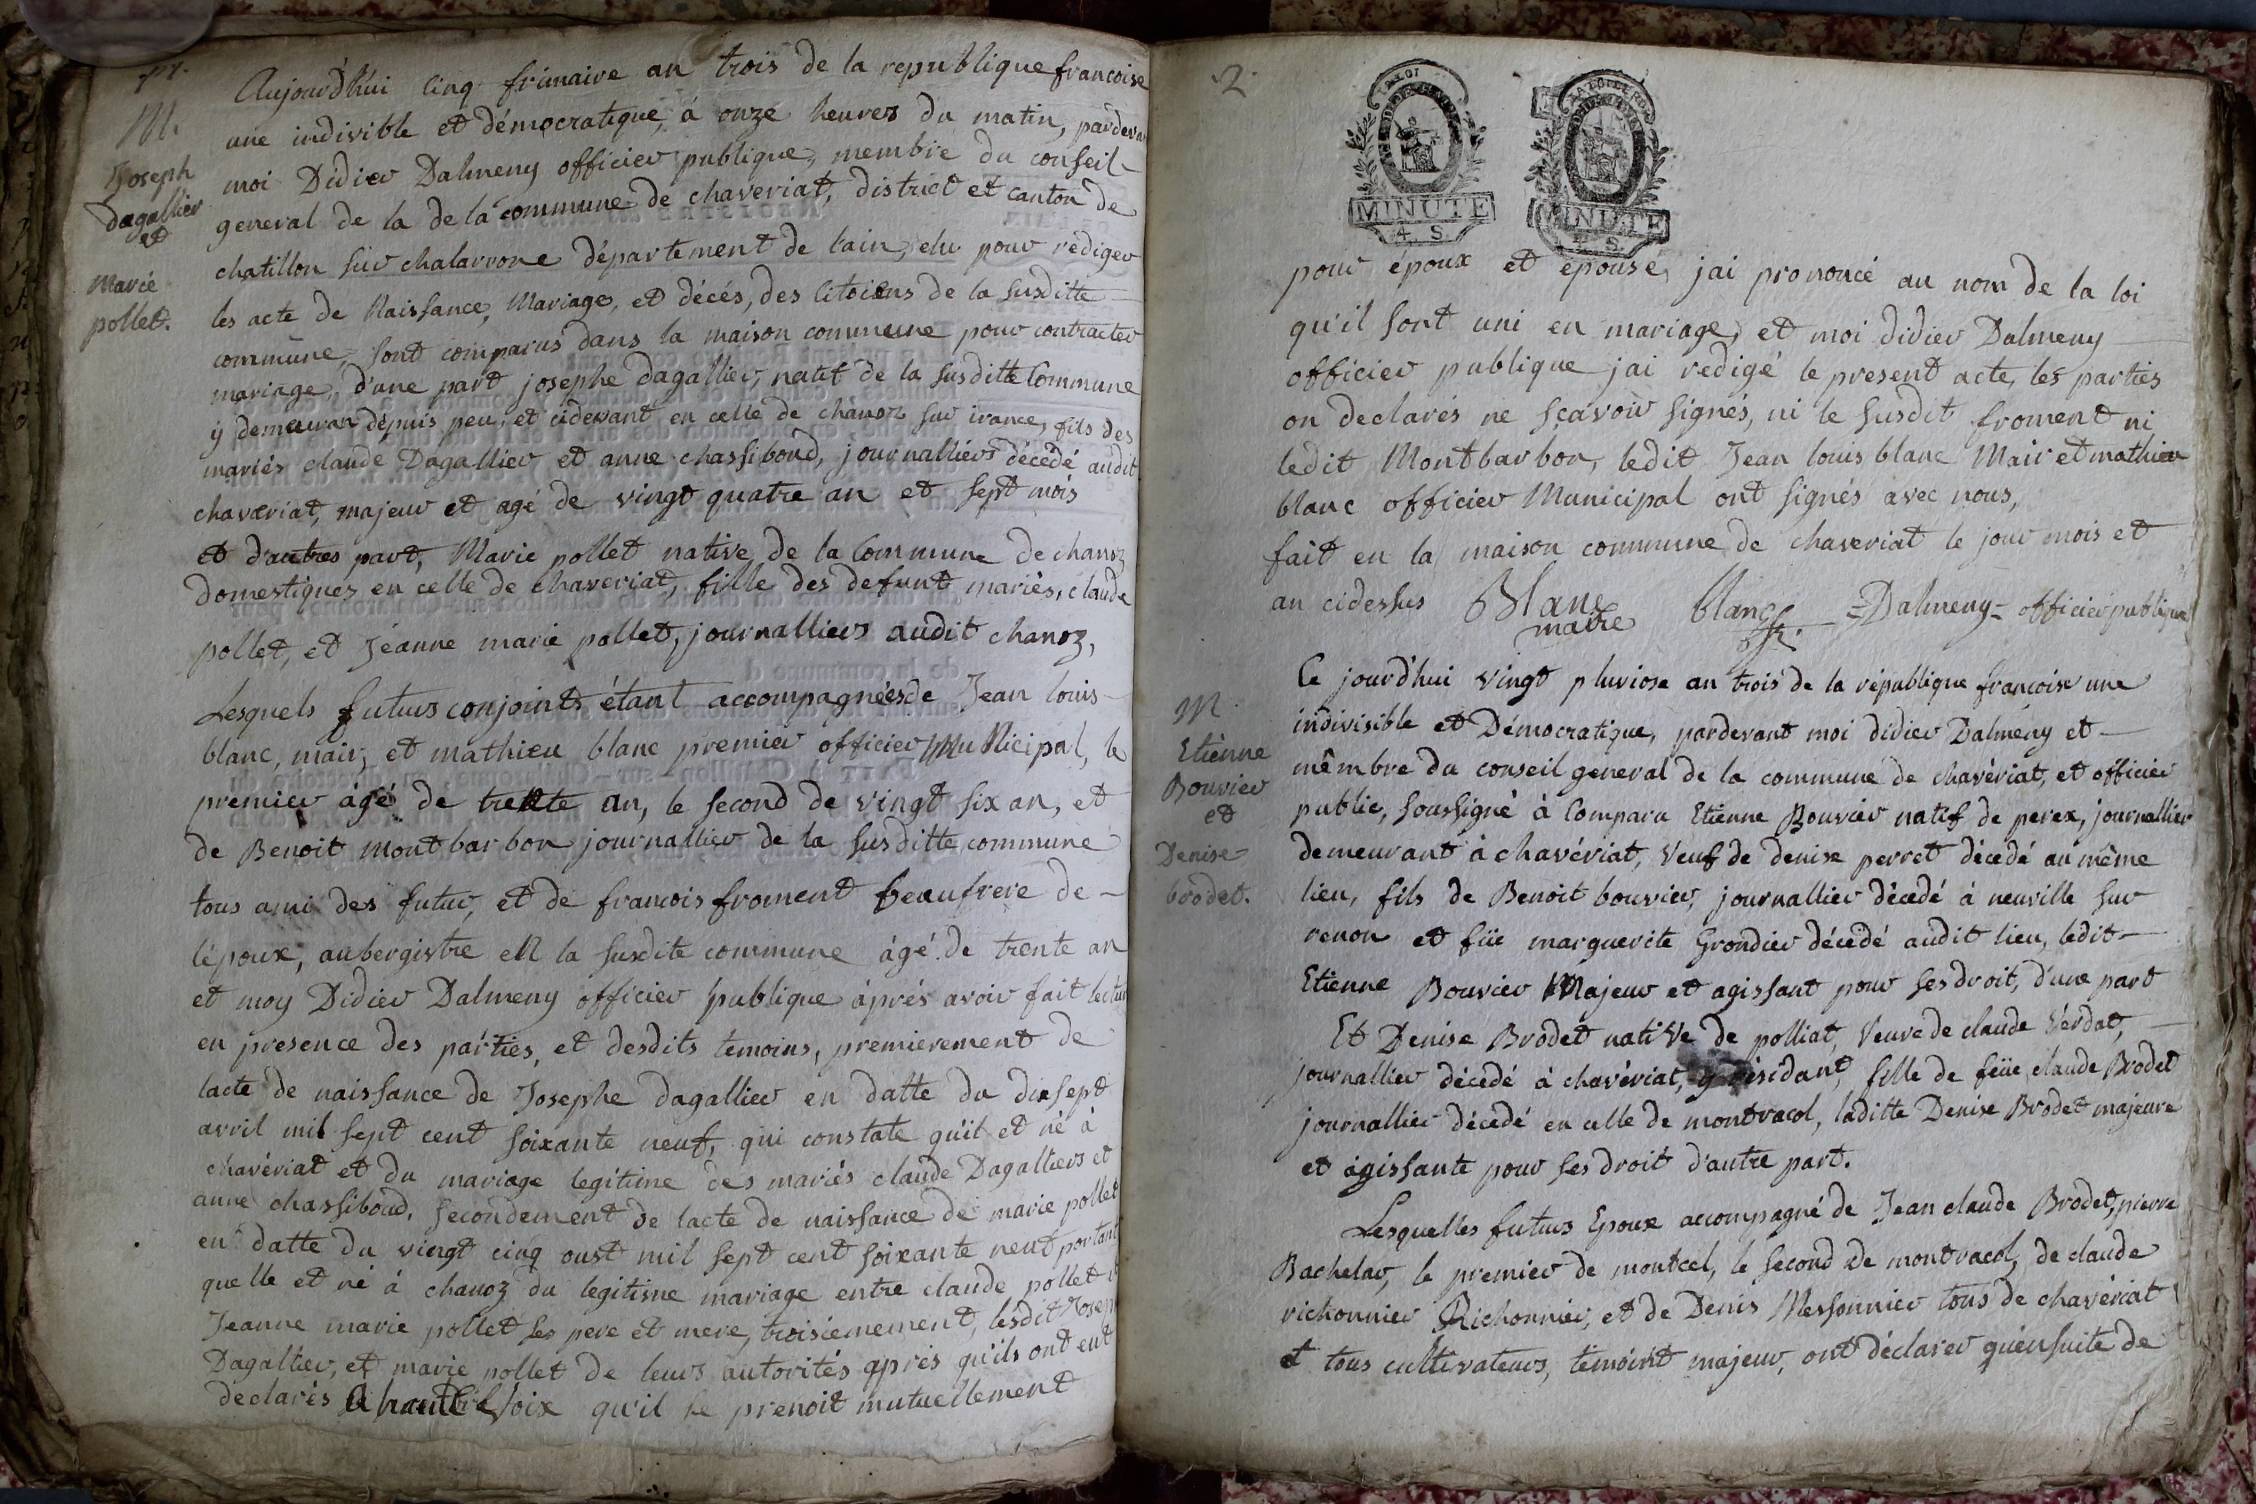 M.
Joseph
dagallier
et
marie
pollet.
Aujourd'hui cinq frimaire an trois de la republique francoise
une indivible et démocratique, à onze heures du matin, pardeva
moi Didier Dalmeny officier publique, membre du conseil
general de la de la commune de chaveriat, district et canton de
chatillon sur chalarrone département de lain, elu pour rédiger
les acte de Naissance, Mariage, et décés, des Citoiens de la susditte
commune, sont comparus dans la maison commune pour contracter
mariage, d'une part josephe dagallier, natif de la susditte Commune
ÿ demeuran dépuis peu, et cidevant en celle de chanoz sur irance, fils des
mariés claude Dagallier et anne chassiboud, journalliers décédé audit
chaveriat, majeur et agé de vingt quatre an et sept mois
et d'autres part, Marie pollet native de la Commune de chanoz
domestiques en celle de chaveriat, fille des defunt mariés, claude
pollet, et Jéanne marie pollet, journalliers audit chanoz,
Lesquels futurs conjoints étant accompagnées de Jean louis
blanc, mair, et mathieu blanc premier officier Municipal, le
premier âgé de trente an, le second de vingt six an, et
de Benoit montbarbon journallier de la susditte commune
tous ami des futur, et de francois froment beaufrere de
lépoux, aubergistre en la susdite commune âgé de trente an
et moy Didier Dalmeny officier publique àprés avoir fait lectur
en presence des parties, et desdits temoins, premierement de
lacte de naissance de Josephe dagallier en datte du dixsept
avril mil sept cent soixante neuf, qui constate qu'il et né à
chavériat et du mariage legitime des mariés claude Dagalliers et
anne chassiboud. secondement de lacte de naissance de marie pollet
en datte du vingt cinq oust mil sept cent soixante neuf portant
quelle et né à chanoz du legitisme mariage entre claude pollet et
Jeanne marie pollet ses pere et mere, troisiemement, lesdit Joseph
Dagallier, et marie pollet de leurs autorités aprés qu'ils ont eut
declarés A haute Voix qu'il se prenoit mutuellement
2.
LA LOI
MINUTE
4. S.
MINUTE
4. S.
pour époux et épouse, jai prononcé au nom de la loi
qu'il sont uni en mariage, et moi didier Dalmeny
officier publique jai redigé le present acte, les parties
on declarés ne sçavoir signés, ni le susdit froment ni
ledit Montbarbon, ledit Jean louis blanc Mair et mathieu
blanc officier Municipal ont signés avec nous,
fait en la maison commune de chaveriat le jour mois et
an cidessus Blanc maire blanc off. =Dalmeny= officier publique
M.
Etiènne
Bouvier
et
Denise
brodet.
Ce jourd'hui vingt pluviose an trois de la république francoise une
indivisible et Démocratique, pardevant moi didier Dalmeny et
mêmbre du conseil general de la commune de chavériat, et officier
public, soussigné à Comparu Etienne Bouvier natif de perex, journallier
demeurant à chavériat, Veuf de denise perret décedé au même
lieu, fils de Benoit bouvier, journallier décédé à neuville sur
renon et füe marguerite Grondier décédé audit lieu, ledit
Etienne Bouvier Majeur et agissant pour ses droit, d'une part
Et Denise Brodet native de polliat, Veuve de claude Verdat,
journallier décedé à chavériat, y résidant, fille de feüe claude Brodet
journallier décédé en celle de montracol, laditte Denise Brodet majeure
et agissante pour ses droit d'autre part.
Lesquelles futurs Epoux accompagné de Jean claude Brodet, pierre
Bachelar, le premier de montcel, le second de montracol, de claude
richonnier Richonnier, et de Denis Messonnier tous de chavériat
et tous cultivateurs, témoint majeur, ont déclarer qu'ensuite de